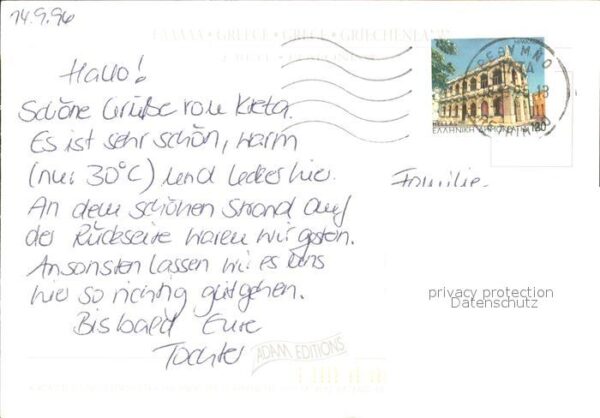 14.9.96
ΕΛΛΑΔΑ · GREECE · GRÈCE · GRIECHENLAND
Hallo!
Schöne Grüße von Kreta.
Es ist sehr schön, warm
(nur 30°C) und lecker hier.
An dem schönen Strand auf
der Rückseite waren wir gestern.
Ansonsten lassen wir es uns
hier so richtig gutgehen.
Bis bald Eure
Tochter
ΡΕΘΥΜΝΟ
ΕΛΛΗΝΙΚΗ ΔΗΜΟΚΡΑΤΙΑ 120
Familie
privacy protection
Datenschutz
ADAM EDITIONS